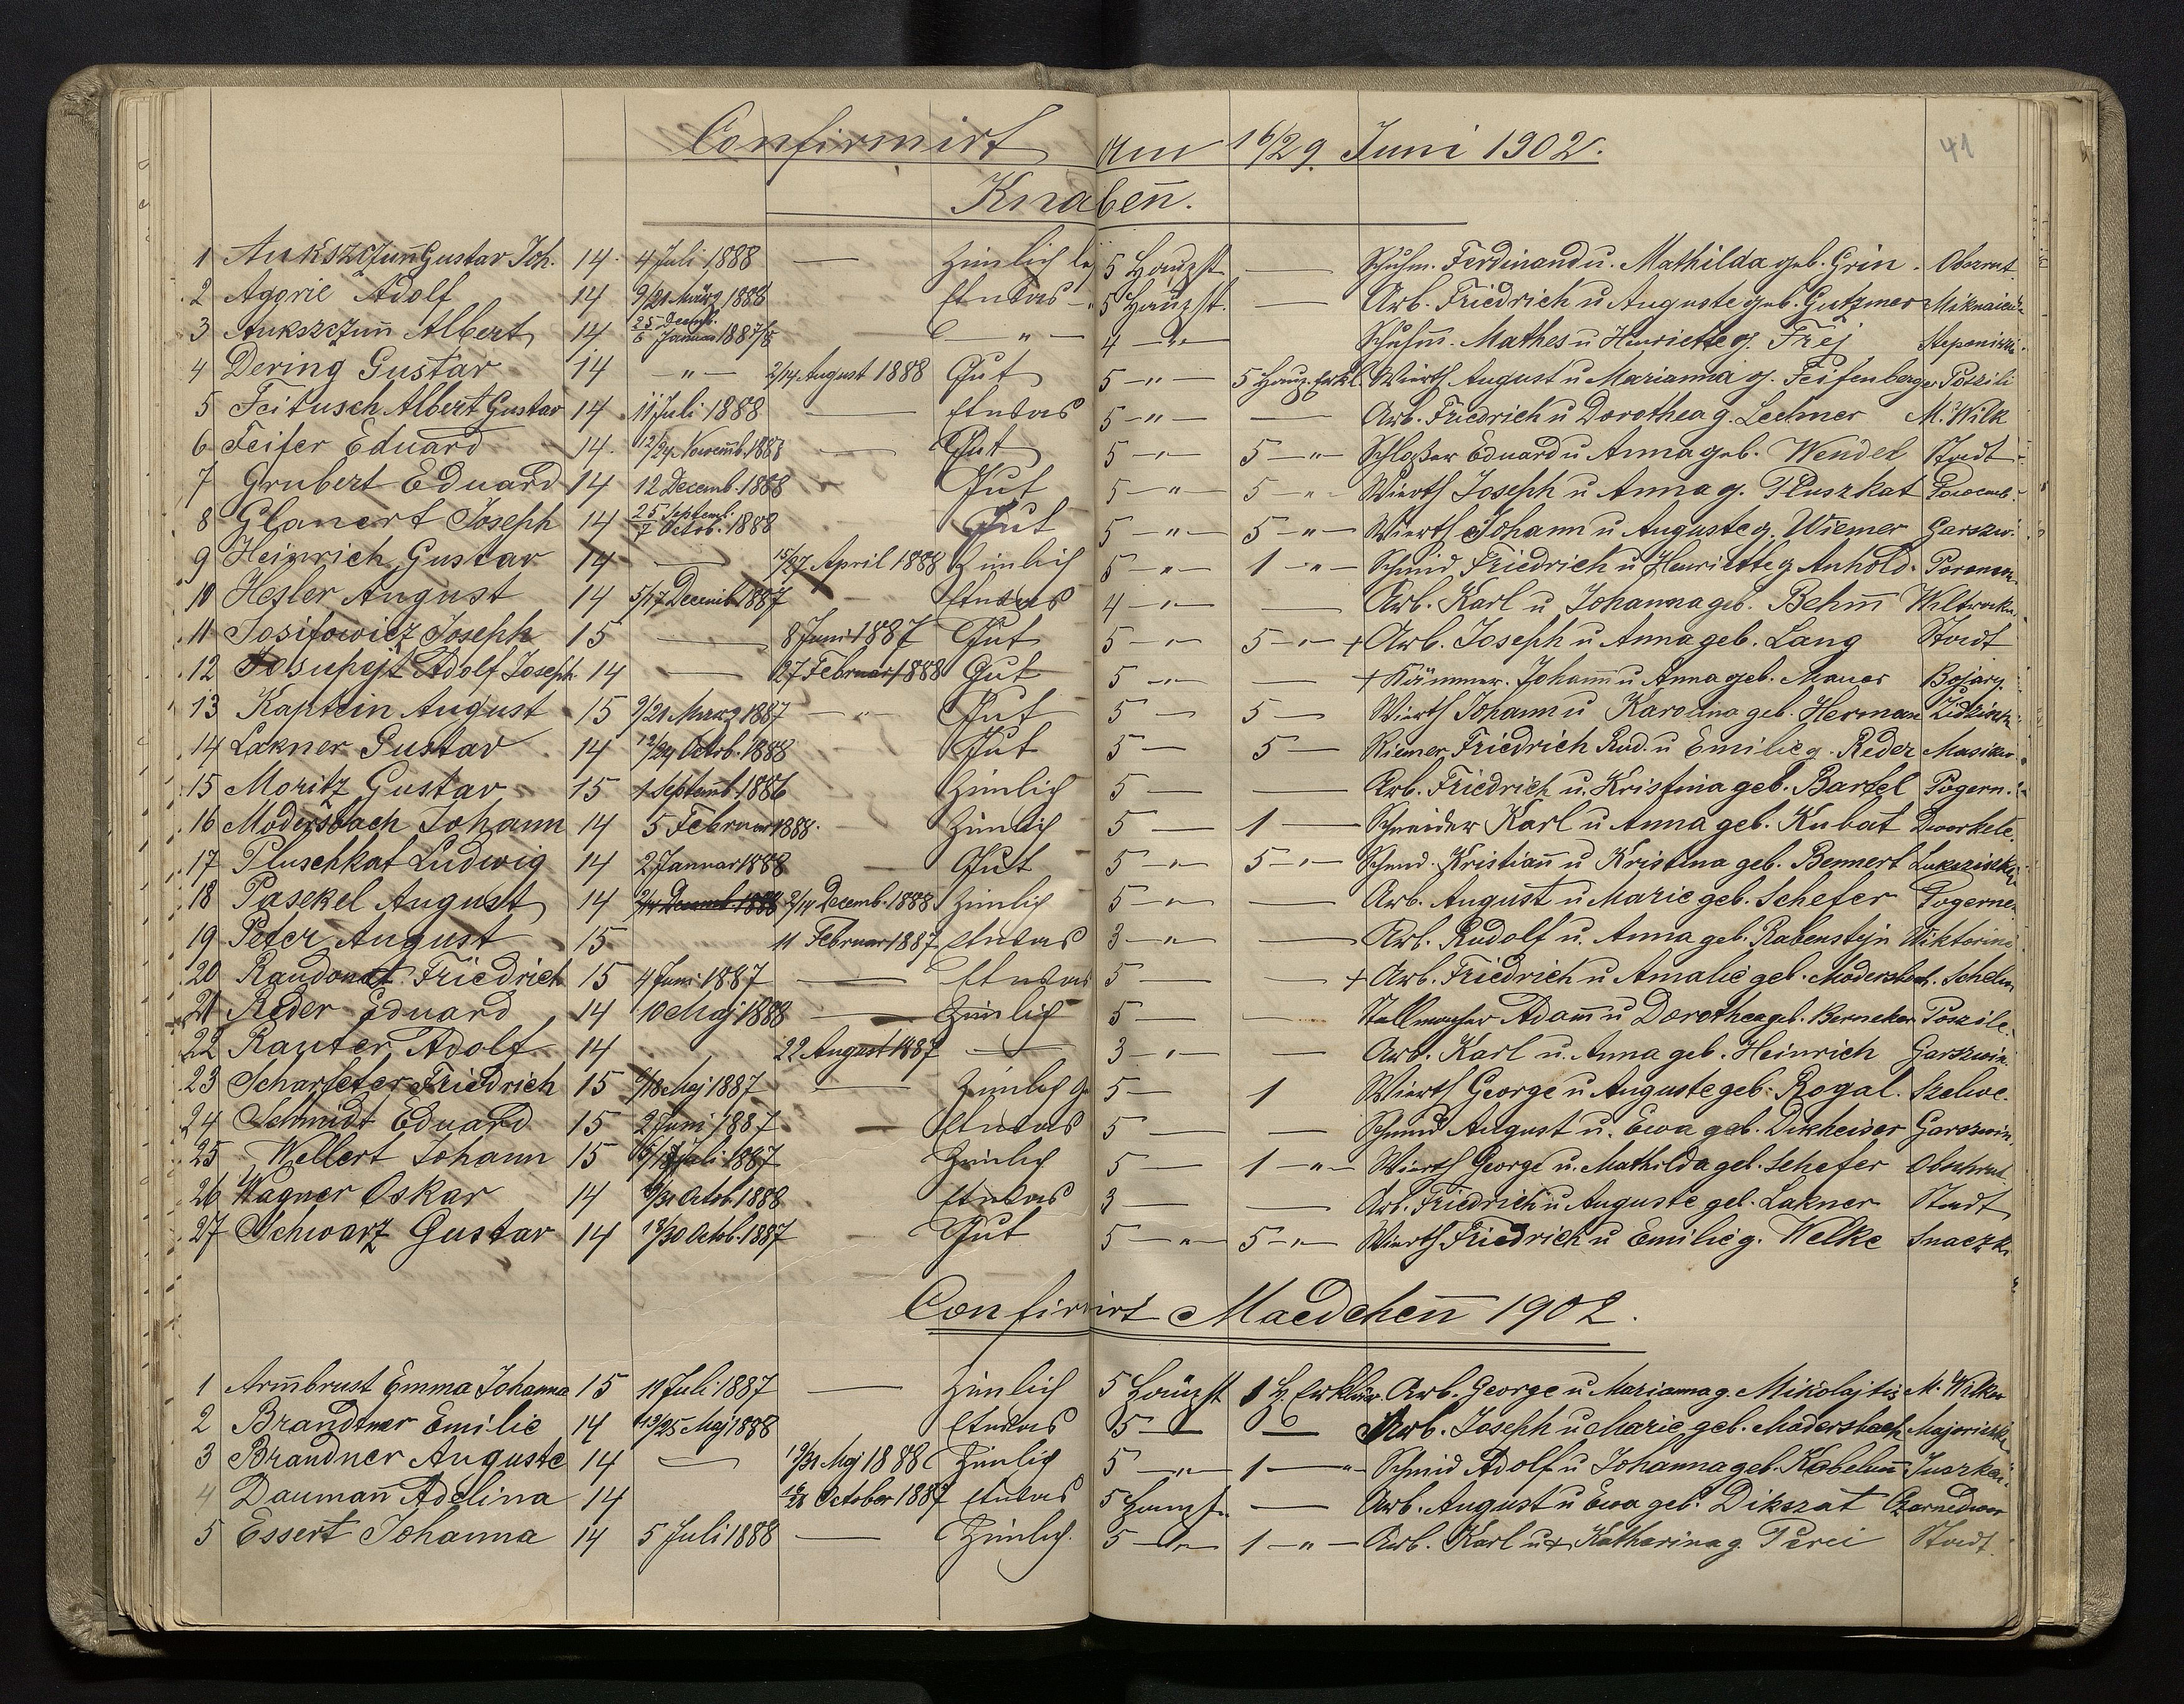 Confirmirt am 16/29 Juni 1902.
41
Knaben̄.
1 Gustav Joh. 14 4 Juli 1888 — Zimlich 5 Haupst — Schuhm. Ferdinand u. Mathilda geb. Grin.
2 Aggrie Adolf 14 9/21 März 1888 — Etwas 5 Haupst. — Arb. Friedrich u Auguste geb. Gutzmer
3 Albert 14 25 Decemb. / 6 Januar 1887/8 — " — 4 — " — Schuhm̄. Mathes u Henriette g. Frej
4 Dering Gustav 14 — " — 2/14 August 1888 Gut 5 — " — 5 Haup. Erkl. Wierth August u Marianna g. Feifenberger Poszili
5 Feitusch Albert Gustav 14 11 Juli 1888 — Etwas 5 — " — — Arb. Friedrich u Dorothea g. Lechner M. Wilk
6 Feifer Eduard 14. 12/24 Novem̄b. 1888 — Gut 5 — " — 5 — " — Schloßer Eduard u Anna geb. Wendel Stadt
7 Grubert Eduard 14 12 Decemb. 1888 Gut 5 — " — 5 — " — Wierth Joseph u Anna g. Pluszkat
8 Glanert Joseph 14 25 Septemb. / 7 Octob. 1888 Gut 5 — " — 5 — " — Wierth Johann u Auguste g. Wiemer Garszwi.
9 Heinrich Gustav 14 — 15/27 April 1888 Zimlich 5 — " — 1 — " — Schmid Friedrich u Henriette g Anhold.
10 Hesler August 14 5/17 Decemb. 1887 — Etwas 4 — " — — Arb. Karl u Johanna geb. Behm̄
11 Josifowicz Joseph 15 — 8 Juni 1887 Gut 5 — " — 5 — " — + Arb. Joseph u Anna geb. Lang Stadt
12 Josupejt Adolf Joseph. 14 — 27 Februar 1888 Gut 5 — " — — + Kämmer. Johan̄ u Anna geb. Mauer Bojary.
13 Kaptein August 15 9/21 März 1887 — " — Gut 5 — 5 — Wierth Johann u Karolina geb. Herman
14 Lakner Gustav 14 12/24 Octob. 1888 Gut 5 — 5 — Riemer Friedrich Rud. u Emilie g. Reder
15 Moritz Gustav 15 1 Septemb. 1886 Zimlich 5 — — Arb. Friedrich u. Kristina geb. Bartel Pogern.
16 Modersbach Johann 14 5 Februar 1888. Zimlich 5 — 1 — Schneider Karl u Anna geb. Kubat Dworkele.
17 Pluschkat Ludwig 14 2 Januar 1888 — Gut 5 — " — 5 — " — Schmd. Kristian̄ u Kristina geb. Bennert
18 Pasekel August 14 2/14 Decemb. 1888 2/14 Decemb. 1888 Zimlich 5 — " — — Arb. August u Marie geb. Schefer Pogerne.
19 Peter August 15 11 Februar 1887 Etwas 3 — " — — Arb. Rudolf u. Anna geb. Rabenstejn Wiktorine
20 Raudonat Friedrich 15 4 Juni 1887 — Etwas 5 — — + Arb. Friedrich u Amalie geb. Modersbach. Schelw
21 Reder Eduard 14 10 Maj 1888 — Zimlich 5 — — Stellmacher Adam̄ u Dorothea geb. Berneker Poszile.
22 Rauter Adolf 14 22 August 1887 — 3 — " — — Arb. Karl u. Anna geb. Heinrich Garszwin.
23 Scharfeter Friedrich 15 6/18 Maj 1887 — Zimlich 5 — 1 Wierth George u Auguste geb. Rogal. Szelwe.
24 Schmidt Eduard 15 2 Juni 1887 — Etwas 5 — — Schmid August u. Ewa geb. Dikheiser Garszwin.
25 Wellert Johann 15 Juli 1887 Zimlich 5 — 1 — " — Wierth George u. Mathilda geb. Schefer
26 Wagner Oskar 14 Octob. 1888 Etwas 3 — — Arb. Friedrich u Auguste geb. Lakner Stadt
27 Schwarz Gustav 14 18/30 Octob. 1887 — Gut 5 — " — 5 — " — Wierth Friedrich u Emilie g. Welke
Confirmirt Maedchen̄ 1902.
1 Arm̄brust Emma Johanna 15 11 Juli 1887 — Zimlich 5 Haupst 1 H. Erklär. Arb. George u Marianna g. Mikolajtis M. Wilkw
2 Brandtner Emilie 14 13/25 Maj 1888 Etwas 5 — — Arb. Joseph u Marie geb. Madersbach
3 Brandner Auguste 14 — 19/31 Maj 1888 Zimlich 5 — " — 1 — " — Schmid Adolf u Johanna geb.
4 Dauman̄ Adelina 14 October 1887 Etwas 5 Haupst. — Arb. August u Ewa geb. Dikszat Czarnedwor
5 Essert Johanna 14 5 Juli 1888 — Zimlich. 5 — " — 1 — " — Arb. Karl u + Katharina g. Perei Stadt.